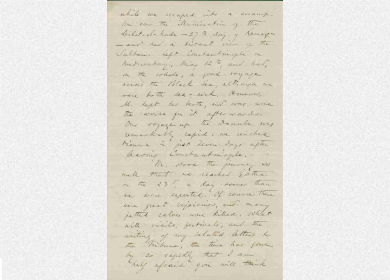 while we escaped into a swamp.
we saw the illumination of the
— 27th day of Ramazan
— and had a distant view of the
Sultan. left Constantinople on
Wednesday, May 12th, and had,
on the whole, a good voyage
across the Black Sea, although we
were both sea-sick.
kept her berth, and was none
the worse for it afterwards.
Our voyage up the Danube was
remarkably rapid: we reached
Vienna in just seven days after
leaving Constantinople.
We the journey so
well that we reached Gotha
on the 23d a day sooner than
we were expected. Of course there
was great rejoicing, and many
fatted calves were killed. What
with visits, festivals, and the
writing of my belated letters to
the Tribune, the time has gone
by so rapidly that I am
half afraid you will think